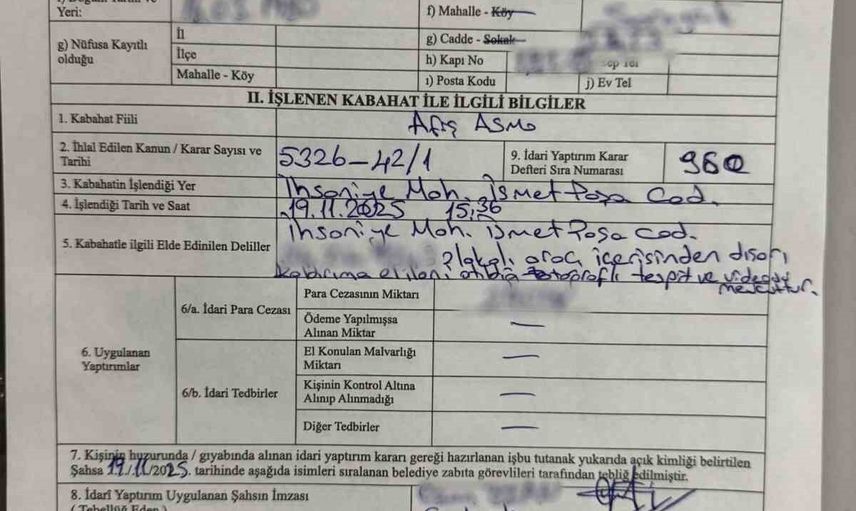 Yeri:
f) Mahalle - Köy
g) Nüfusa Kayıtlı olduğu
İl
g) Cadde - Sokak
İlçe
h) Kapı No
Cep Tel
Mahalle - Köy
ı) Posta Kodu
j) Ev Tel
II. İŞLENEN KABAHAT İLE İLGİLİ BİLGİLER
1. Kabahat Fiili
Afiş ASMA
2. İhlal Edilen Kanun / Karar Sayısı ve Tarihi
5326-42/1
9. İdari Yaptırım Karar Defteri Sıra Numarası
960
3. Kabahatin İşlendiği Yer
İhsaniye Mah. İsmetPaşa Cad.
4. İşlendiği Tarih ve Saat
19.11.2025 15:36
5. Kabahatle ilgili Elde Edinilen Deliller
İhsaniye Mah. ismetPaşa cad.
plakalı araç içerisinden dışarı
kaldırıma el ilanı atıldığı fotoğraflı tespit ve videosu
mevcuttur.
6. Uygulanan Yaptırımlar
6/a. İdari Para Cezası
Para Cezasının Miktarı
Ödeme Yapılmışsa Alınan Miktar
—
6/b. İdari Tedbirler
El Konulan Malvarlığı Miktarı
—
Kişinin Kontrol Altına Alınıp Alınmadığı
—
Diğer Tedbirler
—
7. Kişinin huzurunda / gıyabında alınan idari yaptırım kararı gereği hazırlanan işbu tutanak yukarıda açık kimliği belirtilen
Şahsa 19/11/2025. tarihinde aşağıda isimleri sıralanan belediye zabıta görevlileri tarafından tebliğ edilmiştir.
8. İdarî Yaptırım Uygulanan Şahsın İmzası
( Tebellüğ Eden )